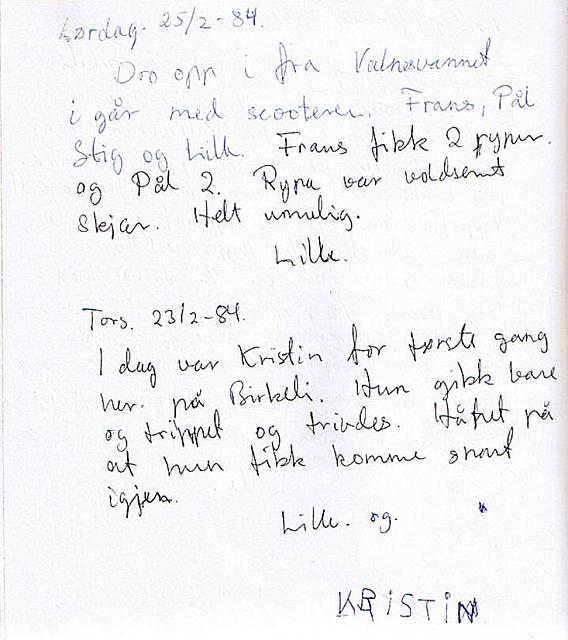 Lørdag. 25/2-84.
Dro opp i fra Valnesvannet
i går med scooteren. Frans, Pål
Stig og Lill. Frans fikk 2 ryper.
og Pål 2. Rypa var voldsomt
skjær. Helt umulig.
Lill.
Tors. 23/2-84.
I dag var Kristin for første gang
her. på Birkeli. Hun gikk bare
og trippet og trivdes. Håpet på
at hun fikk komme snart
igjen.
Lill. og.
KRISTIN